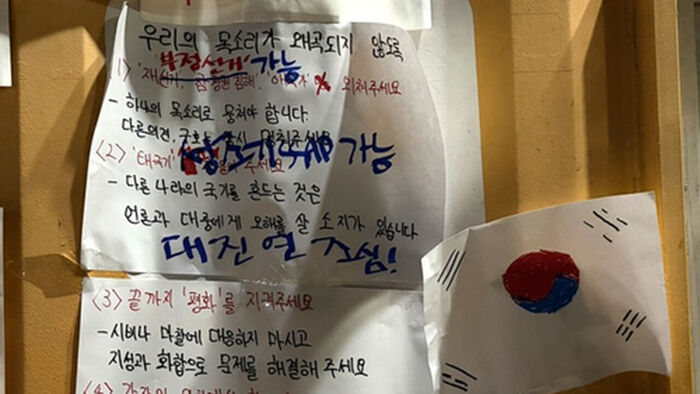 우리의 목소리가 왜곡되지 않도록
부정선거 가능
<1> '재선거', '참정권 침해', 외쳐주세요
- 하나의 목소리로 뭉쳐야 합니다.
다른의견, 구호는 잠시 멈춰주세요
성조기 가능
<2> '태극기' 주세요
- 다른 나라의 국기를 흔드는 것은
언론과 대중에게 오해를 살 소지가 있습니다
대진연 조심!
<3> 끝까지 '평화'를 지켜주세요
- 시비나 마찰에 대응하지 마시고
지성과 화합으로 문제를 해결해 주세요
<4>